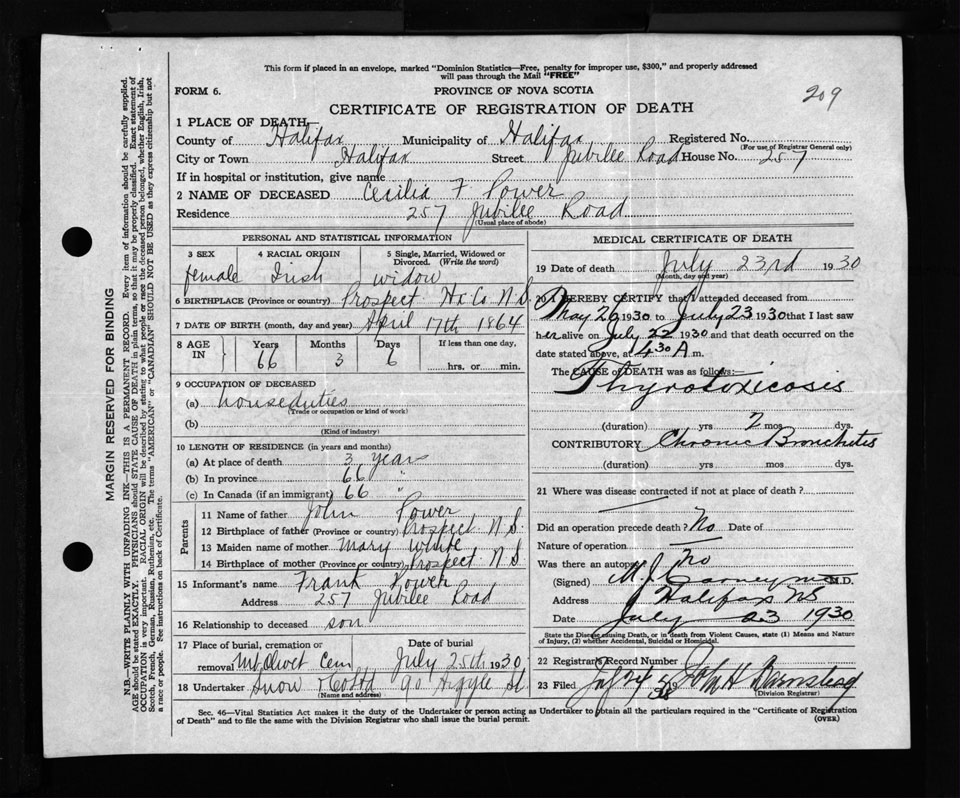 This form if placed in an envelope, marked "Dominion Statistics—Free, penalty for improper use, $300," and properly addressed
will pass through the Mail "FREE"
FORM 6. PROVINCE OF NOVA SCOTIA
209
CERTIFICATE OF REGISTRATION OF DEATH
1 PLACE OF DEATH—
County of Halifax Municipality of Halifax Registered No.
(For use of Registrar General only)
City or Town Halifax Street Jubilee Road House No. 257
If in hospital or institution, give name
2 NAME OF DECEASED Cecilia F Power
Residence 257 Jubilee Road
(Usual place of abode)
PERSONAL AND STATISTICAL INFORMATION
3 SEX 4 RACIAL ORIGIN 5 Single, Married, Widowed or
Divorced. (Write the word)
female Irish widow
6 BIRTHPLACE (Province or country) Prospect Hx Co. N.S.
7 DATE OF BIRTH (month, day and year) April 17th 1864
8 AGE IN Years Months Days If less than one day,
66 3 6 hrs. or min.
9 OCCUPATION OF DECEASED
(a) houseduties
(Trade or occupation or kind of work)
(b)
(Kind of industry)
10 LENGTH OF RESIDENCE (in years and months)
(a) At place of death 3 years
(b) In province 66 "
(c) In Canada (if an immigrant) 66 "
Parents
11 Name of father John Power
12 Birthplace of father (Province or country) Prospect N.S.
13 Maiden name of mother Mary White
14 Birthplace of mother (Province or country) Prospect N.S.
15 Informant's name Frank Power
Address 257 Jubilee Road
16 Relationship to deceased son
17 Place of burial, cremation or Date of burial
removal Mt Olivet Cem July 25th 1930
18 Undertaker Snow & Co Ltd 90 Argyle St.
(Name and address)
MEDICAL CERTIFICATE OF DEATH
19 Date of death July 23rd 1930
(Month, day and year)
20 I HEREBY CERTIFY that I attended deceased from
May 26 1930 to July 23 1930 that I last saw
her alive on July 22 1930 and that death occurred on the
date stated above, at 4 30 A m.
The CAUSE of DEATH was as follows:—
Thyrotoxicosis
(duration) yrs 2 mos dys.
CONTRIBUTORY Chronic Bronchitis
(duration) yrs mos dys.
21 Where was disease contracted if not at place of death?
Did an operation precede death? No Date of
Nature of operation
Was there an autopsy No
(Signed) M. J. Carney M.D.
Address Halifax NS
Date July 23 1930
State the Disease causing Death, or in death from Violent Causes, state (1) Means and Nature
of Injury, (2) whether Accidental, Suicidal or Homicidal.
22 Registrar's Record Number
23 Filed July 24 John H Barnstead
(Division Registrar)
Sec. 46—Vital Statistics Act makes it the duty of the Undertaker or person acting as Undertaker to obtain all the particulars required in the "Certificate of Registration
of Death" and to file the same with the Division Registrar who shall issue the burial permit.
(OVER)
MARGIN RESERVED FOR BINDING
N.B.—WRITE PLAINLY WITH UNFADING INK—THIS IS A PERMANENT RECORD. Every item of information should be carefully supplied.
AGE should be stated EXACTLY. PHYSICIANS should STATE CAUSE OF DEATH in plain terms, so that it may be properly classified. Exact statement of
OCCUPATION is very important. RACIAL ORIGIN will be described by stating to what people or race the deceased person belonged, whether English, Irish,
Scotch, French, German, Russian, Ruthenian, etc. The terms "AMERICAN" or "CANADIAN" SHOULD NOT BE USED as they express citizenship but not
a race or people. See instructions on back of Certificate.